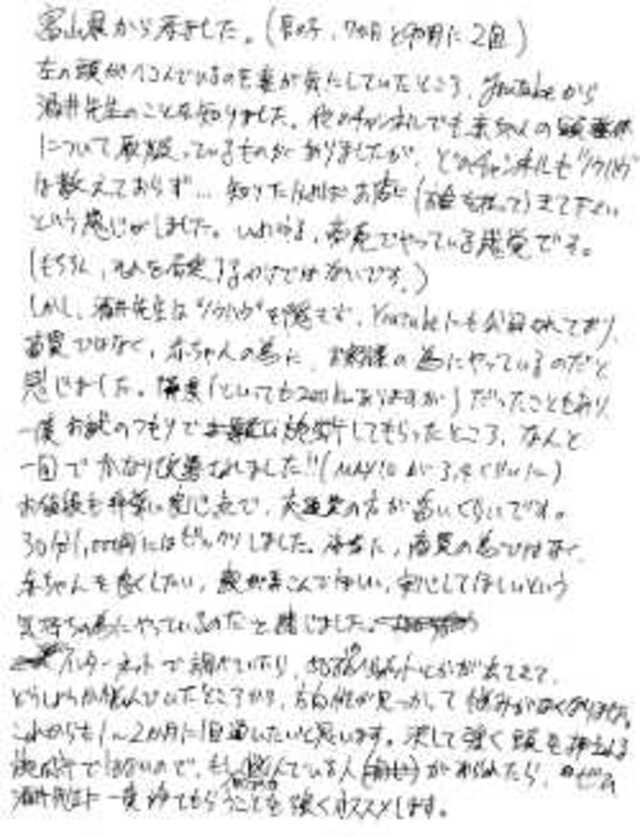 富山県から来ました。(男の子、7か月と初用に2回)
左の頭がへこんでいるのを妻が気にしていたところ、Youtubeから
酒井先生のことを知りました。他のチャンネルでも赤ちゃんの頭
について取扱っているものがありましたが、どのチャンネルも"ノウハウ"
は教えておらず…知りたければお店に(お金を払って)きて下さい
という感じがしました。いわゆる、商売でやっている感覚です。
(もちろん、それを否定するわけではないです。)
しかし、酒井先生は"ノウハウ"を隠さず、Youtubeにも公開されており、
商買ではなく、赤ちゃんの為に、お客様の為にやっているのだと
感じました。隣県(といっても200kmありますが)だったこともあり
一度お試のつもりで施術してもらったところ、なんと
一回でかなり改善されました!!(MAX10が3,4ぐらいに)
お値段も非常に安い点で、交通費の方が高いくらいです。
30分1,000円にはビックリしました。本当に、商買の為ではなく、
赤ちゃんを良くしたい、親が喜こんでほしい、安心してほしいという
気持ちの為にやっているのだと感じました。
インターネットで調べていたら、ヘルメットとかが出てきて、
どうしようか悩んでいたところから、方向性が見つかって悩みがなくなりました。
これからも1〜2か月に1回通いたいと思います。決して強く頭を押さえる
施術ではないので、もし悩んでいる人がおられたら、ぜひ
酒井先生に一度みてもらうことを強くオススメします。